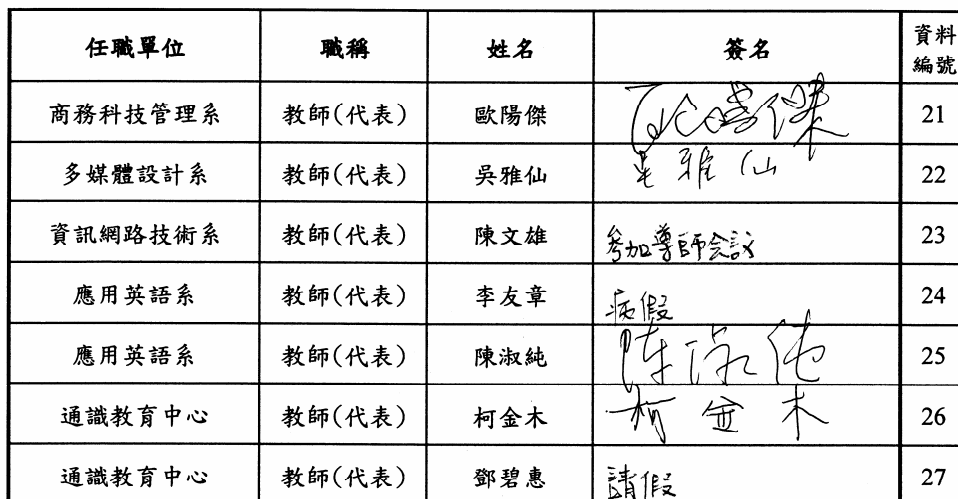 任職單位 職稱 姓名 簽名 資料編號
商務科技管理系 教師(代表) 歐陽傑 歐陽傑 21
多媒體設計系 教師(代表) 吳雅仙 吳雅仙 22
資訊網路技術系 教師(代表) 陳文雄 參加導師会議 23
應用英語系 教師(代表) 李友章 病假 24
應用英語系 教師(代表) 陳淑純 陳淑純 25
通識教育中心 教師(代表) 柯金木 柯金木 26
通識教育中心 教師(代表) 鄧碧惠 請假 27